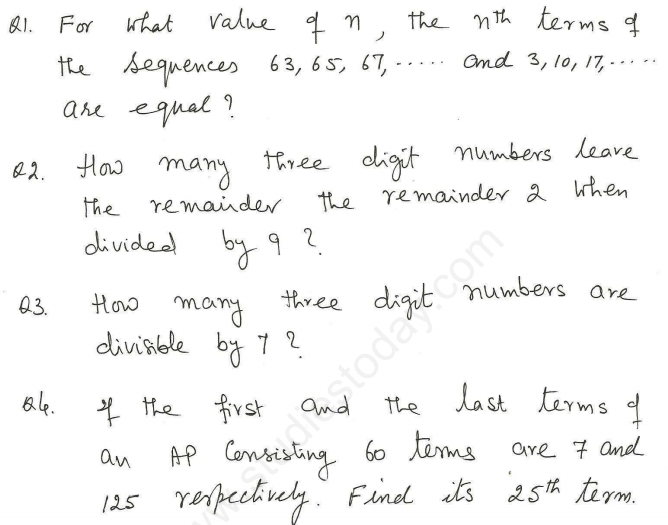 Q1. For what value of n, the nth terms of
the sequences 63, 65, 67, ..... and 3, 10, 17, .....
are equal ?
Q2. How many three digit numbers leave
the remainder the remainder 2 when
divided by 9 ?
Q3. How many three digit numbers are
divisible by 7 ?
Q4. If the first and the last terms of
an AP Consisting 60 terms are 7 and
125 respectively. Find its 25th term.
www.studiestoday.com